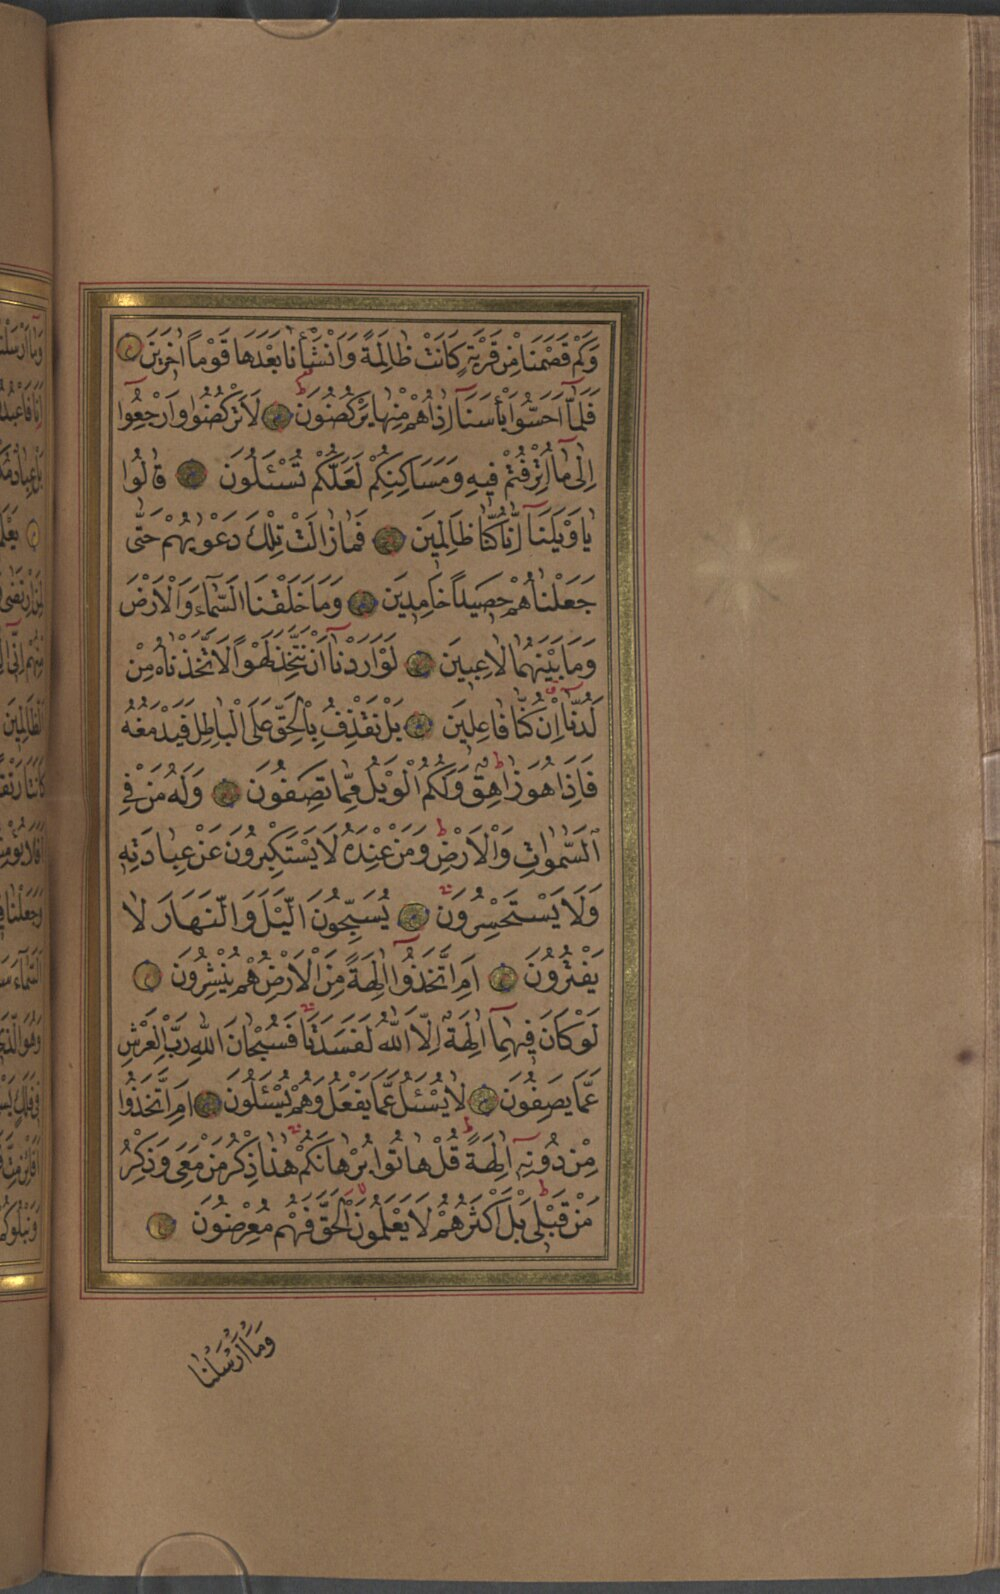 وَكَمْ قَصَمْنَا مِنْ قَرْيَةٍ كَانَتْ ظَالِمَةً وَاَنْشَأْنَا بَعْدَهَا قَوْمًا اٰخَرِينَ
فَلَمَّٓا اَحَسُّوا بَأْسَنَٓا اِذَاهُمْ مِنْهَا يَرْكُضُونَ لَا تَرْكُضُوا وَارْجِعُٓوا
اِلٰى مَٓا اُتْرِفْتُمْ فِيهِ وَمَسَاكِنِكُمْ لَعَلَّكُمْ تُسْـَٔلُونَ قَالُوا
يَا وَيْلَنَٓا اِنَّا كُنَّا ظَالِمِينَ فَمَا زَالَتْ تِلْكَ دَعْوٰيهُمْ حَتّٰى
جَعَلْنَاهُمْ حَصِيدًا خَامِدِينَ وَمَا خَلَقْنَا السَّمَٓاءَ وَالْاَرْضَ
وَمَا بَيْنَهُمَا لَاعِبِينَ لَوْ اَرَدْنَٓا اَنْ نَتَّخِذَ لَهْوًا لَاتَّخَذْنَاهُ مِنْ
لَدُنَّٓا اِنْ كُنَّا فَاعِلِينَ بَلْ نَقْذِفُ بِالْحَقِّ عَلَى الْبَاطِلِ فَيَدْمَغُهُ
فَاِذَا هُوَ زَاهِقٌ وَلَكُمُ الْوَيْلُ مِمَّا تَصِفُونَ وَلَهُ مَنْ فِي
السَّمٰوَاتِ وَالْاَرْضِ وَمَنْ عِنْدَهُ لَا يَسْتَكْبِرُونَ عَنْ عِبَادَتِهِ
وَلَا يَسْتَحْسِرُونَ يُسَبِّحُونَ الَّيْلَ وَالنَّهَارَ لَا
يَفْتُرُونَ اَمِ اتَّخَذُٓوا اٰلِهَةً مِنَ الْاَرْضِ هُمْ يُنْشِرُونَ
لَوْ كَانَ فِيهِمَٓا اٰلِهَةٌ اِلَّا اللّٰهُ لَفَسَدَتَا فَسُبْحَانَ اللّٰهِ رَبِّ الْعَرْشِ
عَمَّا يَصِفُونَ لَا يُسْـَٔلُ عَمَّا يَفْعَلُ وَهُمْ يُسْـَٔلُونَ اَمِ اتَّخَذُوا
مِنْ دُونِهِٓ اٰلِهَةً قُلْ هَاتُوا بُرْهَانَكُمْ هٰذَا ذِكْرُ مَنْ مَعِيَ وَذِكْرُ
مَنْ قَبْلِي بَلْ اَكْثَرُهُمْ لَا يَعْلَمُونَ الْحَقَّ فَهُمْ مُعْرِضُونَ
وَمَٓا اَرْسَلْنَا